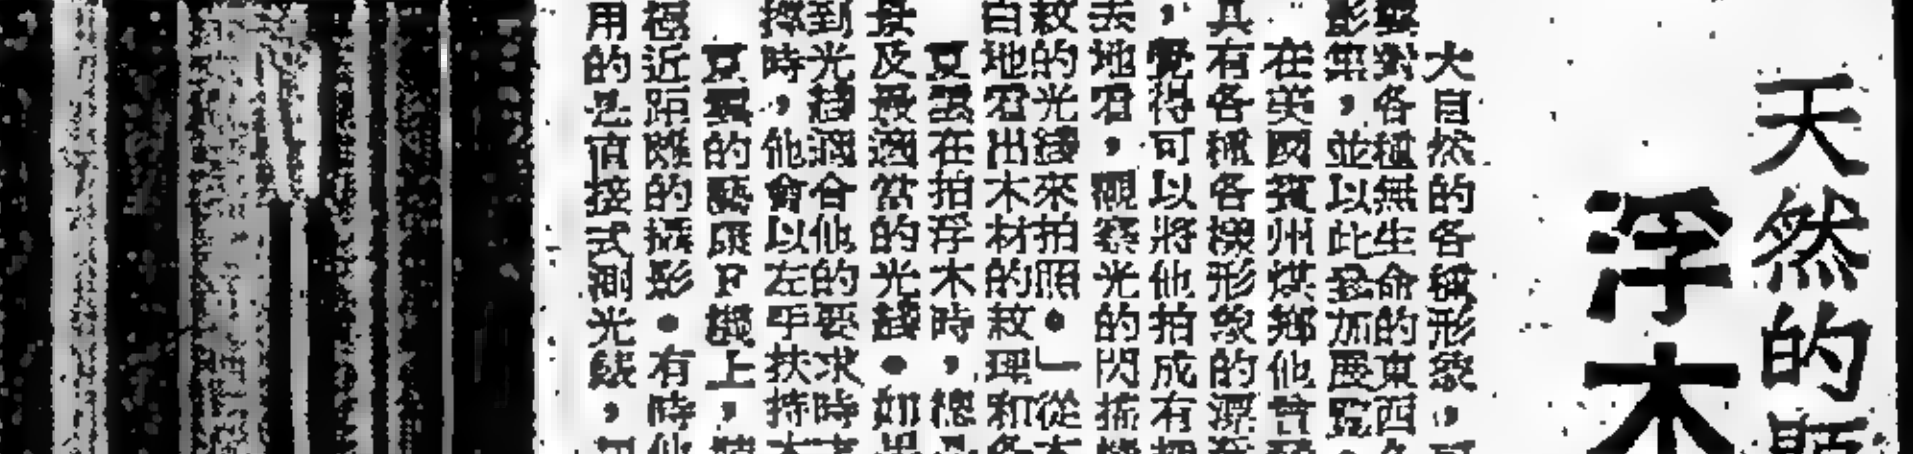 天然的
浮木
大自然的各種形象，可
對各種無生命的東西
影集，並以此參加展覽。
在英國賓州烘鄉他曾
具有各種各樣形象的漂
，覺得可以將他拍成有
去地看，觀察光的閃
紋的光綫來拍照。」從木
自地看出木材的紋理和各
夏雲在拍浮木時，總
及最適當的光綫。如果
到光綫適合他的要求時才
擇時，他會以左手扶持木
夏雲的藝康F機上，
極近距離的攝影。有時他
用的是值接式測光錶，